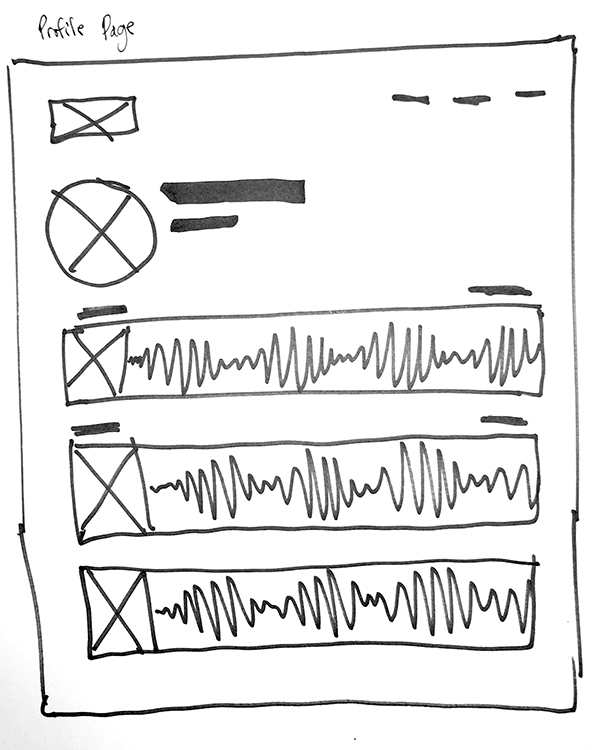 Profile Page